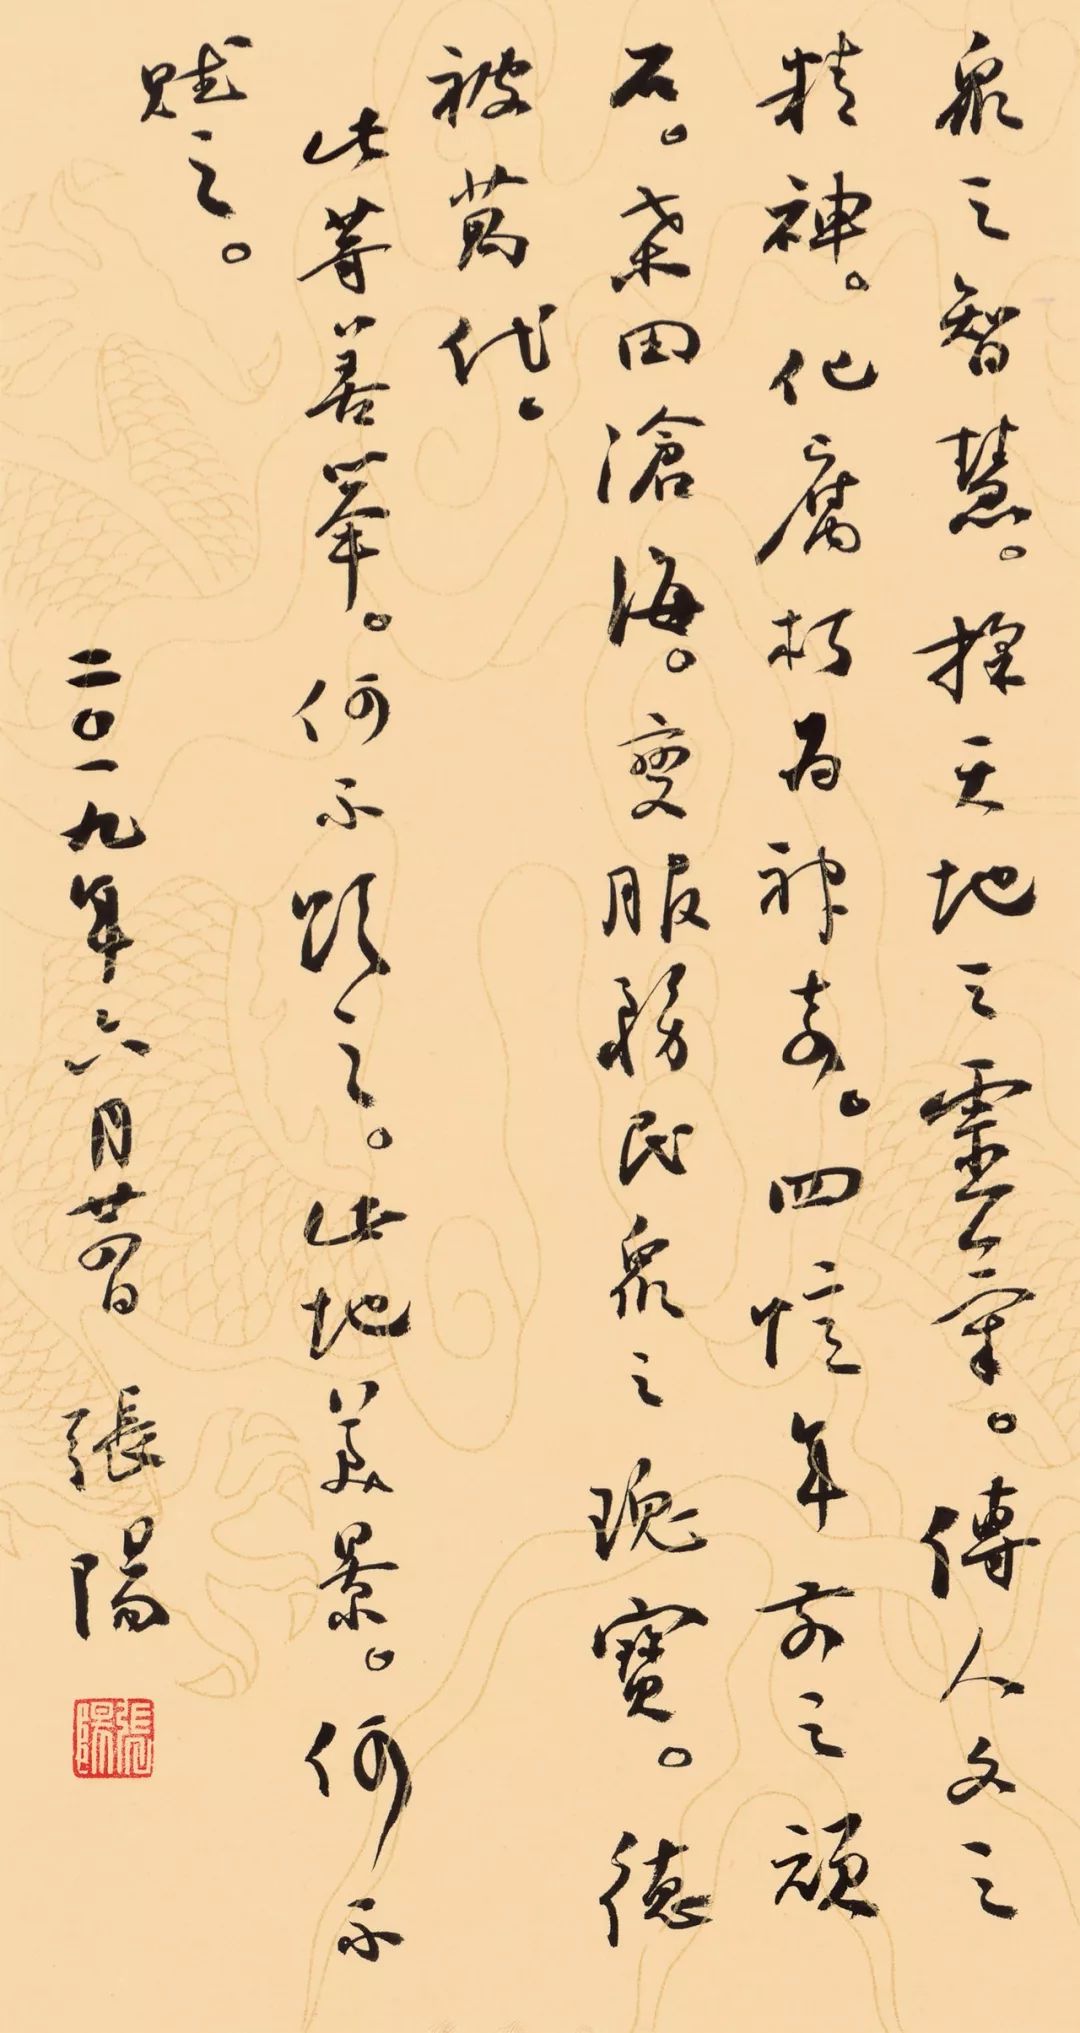 眾之智慧。採天地之靈氣。傳人文之
精神。化腐朽為神奇。四億年前之頑
石。桑田滄海。變服務民眾之瑰寶。德
被萬代。
此等善舉。何不頌之。此地美景。何不
賦之。
二〇一九年六月廿四日 張陽
張陽